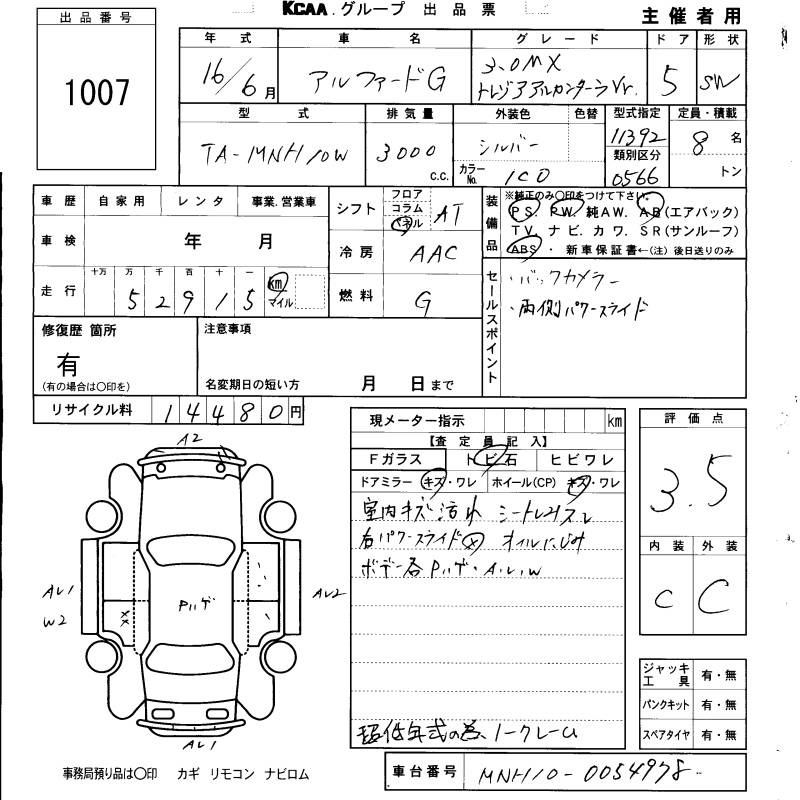 KCAA.グループ 出品票 主催者用
出品番号
1007
年式 車名 グレード ドア 形状
16/6月 アルファードG 3.0MX 5 SW
トレジャアルカンターラVr.
型式 排気量 外装色 色替 型式指定 定員・積載
TA-MNH10W 3000 c.c. シルバー 11392 8名
カラーNo. 1C0 類別区分 0566 トン
車歴 自家用 レンタ 事業.営業車
車検 年 月
走行 十万 万 千 百 十 一
5 2 9 1 5 km マイル
シフト フロア コラム パネル AT
冷房 AAC
燃料 G
装備品 ※純正のみ〇印をつけて下さい。
PS. PW. 純AW. AB(エアバック)
TV. ナビ. カワ. SR(サンルーフ)
ABS・ 新車保証書←(注) 後日送りのみ
セールスポイント
・バックカメラー
・両側パワースライド
修復歴 箇所
有
(有の場合は〇印を)
注意事項
名変期日の短い方 月 日まで
リサイクル料 14480円
現メーター指示 km
【査定員記入】
Fガラス トビ石 ヒビワレ
ドアミラー キズ・ワレ ホイール(CP) キズ・ワレ
室内キズ汚れ シートしみスレ
右パワースライド㋱ オイルにじみ
ボデー各Pハゲ・A.U.W
超低年式の為、ノークレーム
評価点
3.5
内装 外装
C C
ジャッキ工具 有・無
パンクキット 有・無
スペアタイヤ 有・無
A2
AU1
W2
Pハゲ
XX
AU2
AU1
事務局預り品は〇印 カギ リモコン ナビロム
車台番号 MNH10-0054978